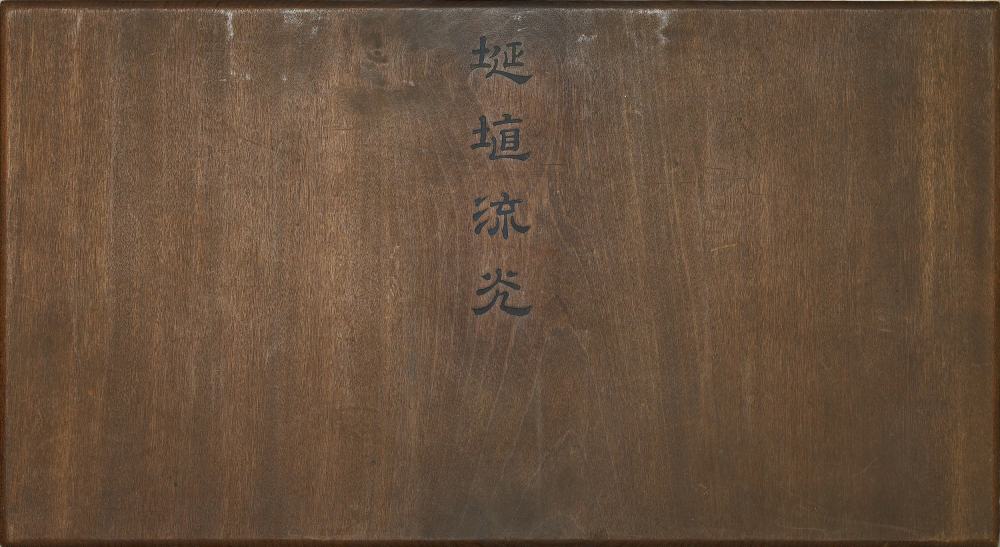 埏埴流光